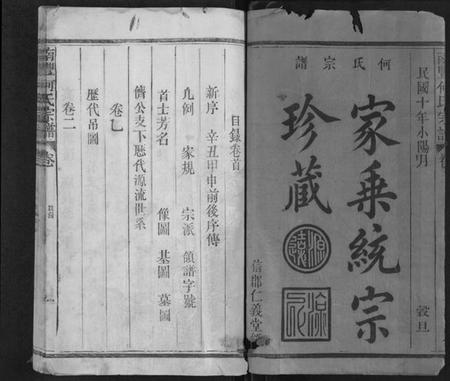 何氏宗譜
民國十年小陽月
穀旦
家乘統宗
珍藏
源遠
流
信郡仁義堂
目錄卷首
新序 辛丑甲申前後序傳
凡例 家規 宗派 領譜字號
首士芳名 像圖 基圖 墓圖
儕公支下歷代源流世系
卷乙
歷代吊圖
卷二
南豐何氏宗譜
卷
目錄
一